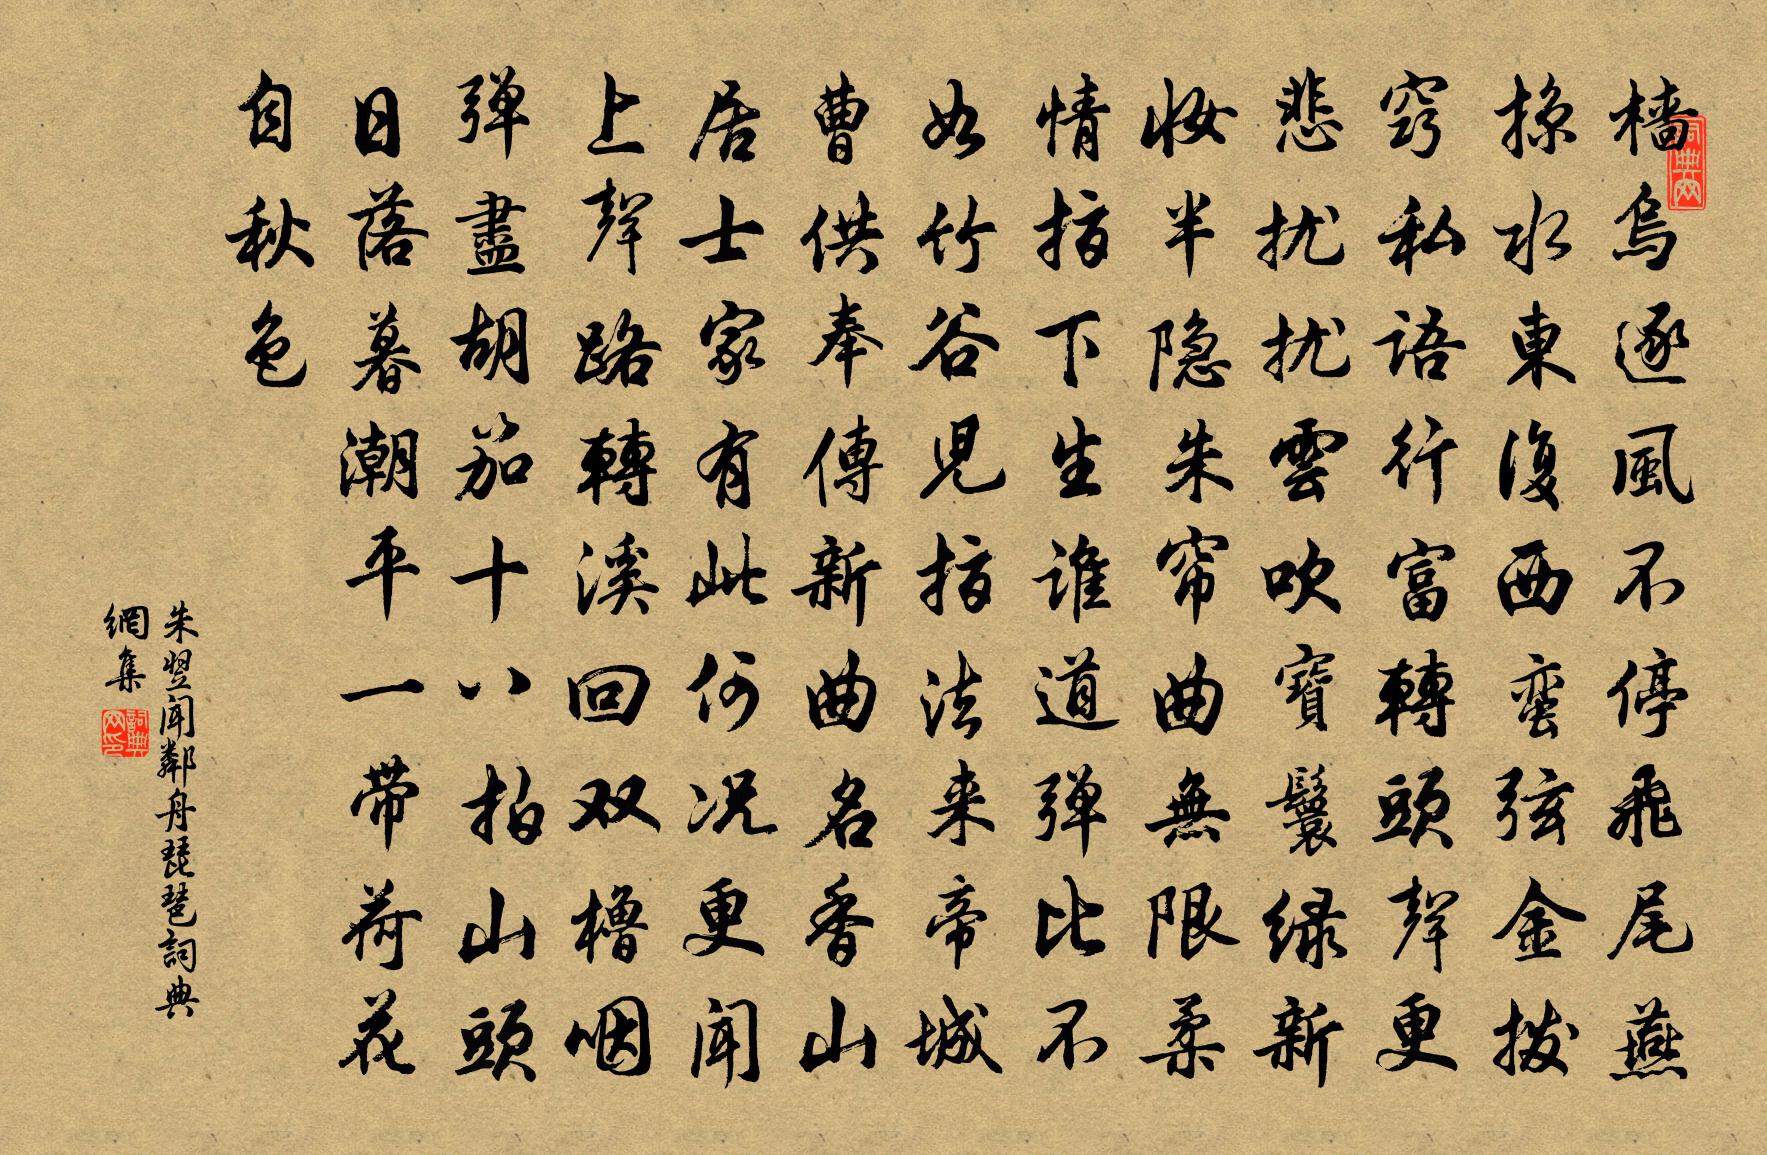 檣烏逐風不停飛尾燕
掠水東復西蛮弦金撥
窈私語行富轉頭聲更
悲扰扰雲吹寶鬟绿新
妝半隐朱帘曲無限柔
情指下生誰道弹比不
如竹谷児指法来帝城
曹供奉傳新曲名香山
居士家有此何况更闻
上聲路轉溪回双櫓咽
弹盡胡笳十八拍山頭
日落暮潮平一带荷花
自秋色
朱翌闻鄰舟琵琶詞典
網集
詞典网
詞典网印